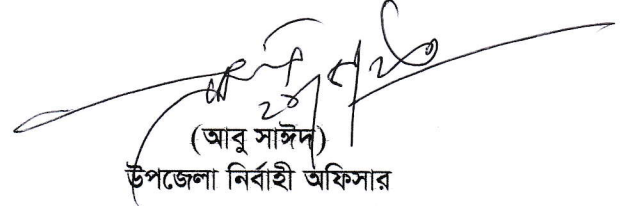 (আবু সাঈদ)
উপজেলা নির্বাহী অফিসার